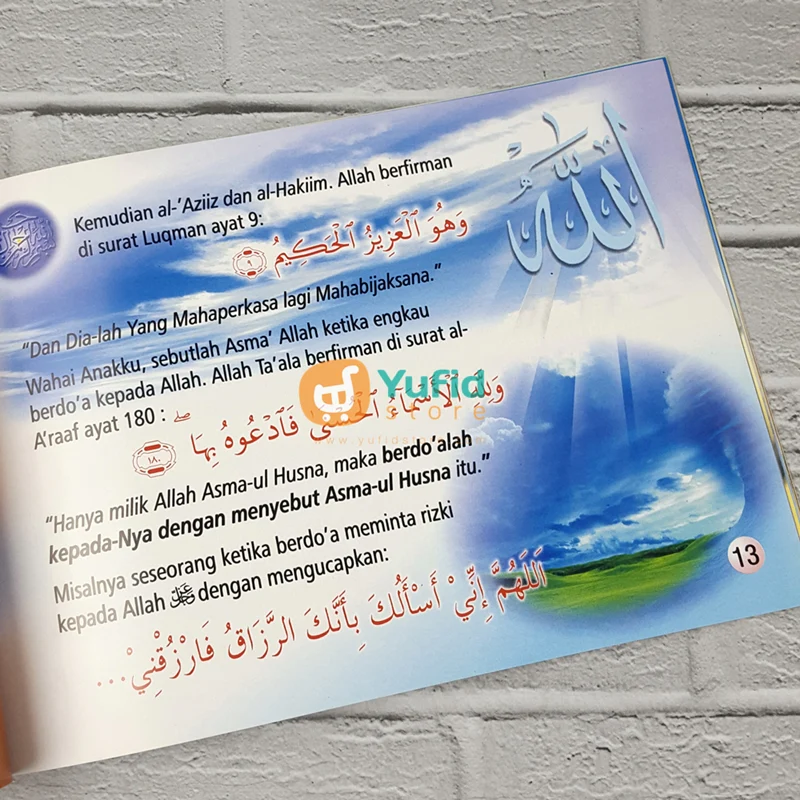 الله
Kemudian al-'Aziiz dan al-Hakiim. Allah berfirman
di surat Luqman ayat 9:
وَهُوَ ٱلْعَزِيزُ ٱلْحَكِيمُ ٩
"Dan Dia-lah Yang Mahaperkasa lagi Mahabijaksana."
Wahai Anakku, sebutlah Asma' Allah ketika engkau
berdo'a kepada Allah. Allah Ta'ala berfirman di surat al-
A'raaf ayat 180 :
وَلِلَّهِ ٱلْأَسْمَآءُ ٱلْحُسْنَىٰ فَٱدْعُوهُ بِهَا ۖ
١٨٠
"Hanya milik Allah Asma-ul Husna, maka berdo'alah
kepada-Nya dengan menyebut Asma-ul Husna itu."
Misalnya seseorang ketika berdo'a meminta rizki
kepada Allah ﷻ dengan mengucapkan:
اَللَّهُمَّ إِنِّيْ أَسْأَلُكَ بِأَنَّكَ الرَّزَّاقُ فَارْزُقْنِيْ...
13
Yufid
store
www.yufidstore.com